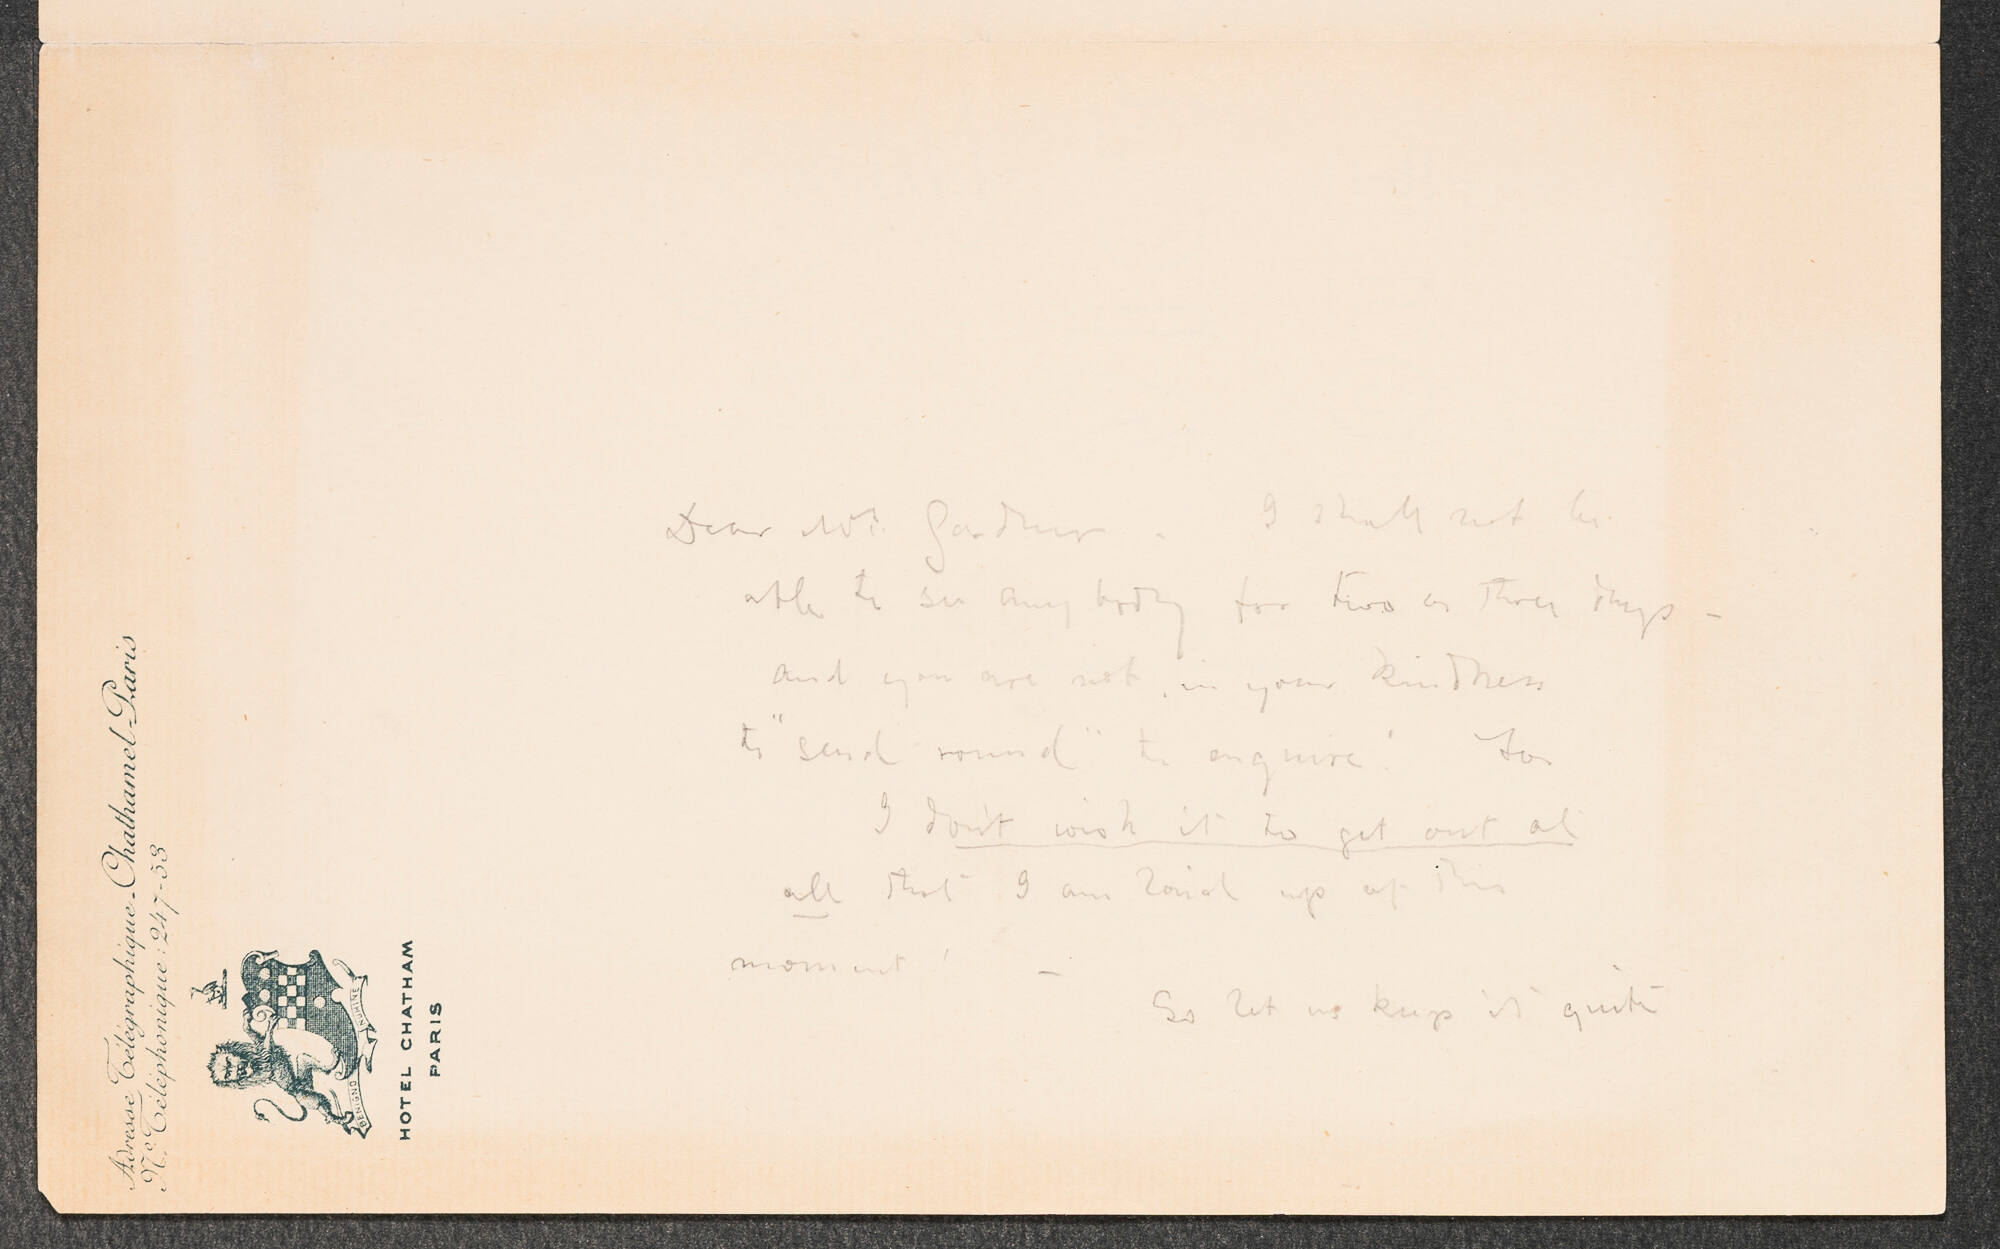 Adresse Télégraphique-Chathamel-Paris
No. Téléphonique: 247-53
BENIGNO NUMINE
HOTEL CHATHAM
PARIS
Dear Mrs. Gardner - I shall not be
able to see any body for two or three days -
and you are not, in your kindness
to "send round" to enquire! For
I don't wish it to get out at
all that I am laid up at this
moment! -
So let us keep it quite